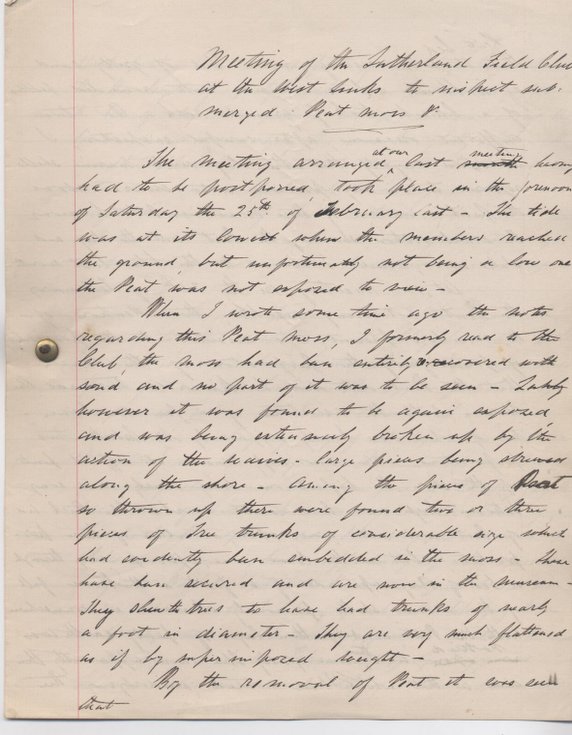 Meeting of the Sutherland Field Club
at the West Links to inspect sub-
merged Peat moss &.
The meeting arranged at our last meeting having
had to be postponed, took place in the forenoon
of Saturday the 25th of February last – The tide
was at its lowest when the members reached
the ground, but unfortunately not being a low one
the Peat was not exposed to view –
When I wrote some time ago the notes
regarding this Peat moss, I formerly read to the
Club, the moss had been entirely covered with
sand and no part of it was to be seen – Lately
however it was found to be again exposed
and was being extensively broken up by the
action of the waves – large pieces being strewed
along the shore – Among the pieces of Peat
so thrown up there were found two or three
pieces of Tree trunks of considerable size which
had evidently been embedded in the moss – these
have been secured and are now in the museum –
They shew the trees to have had trunks of nearly
a foot in diameter – They are very much flattened
as if by superimposed weight –
By the removal of Peat it was seen
that